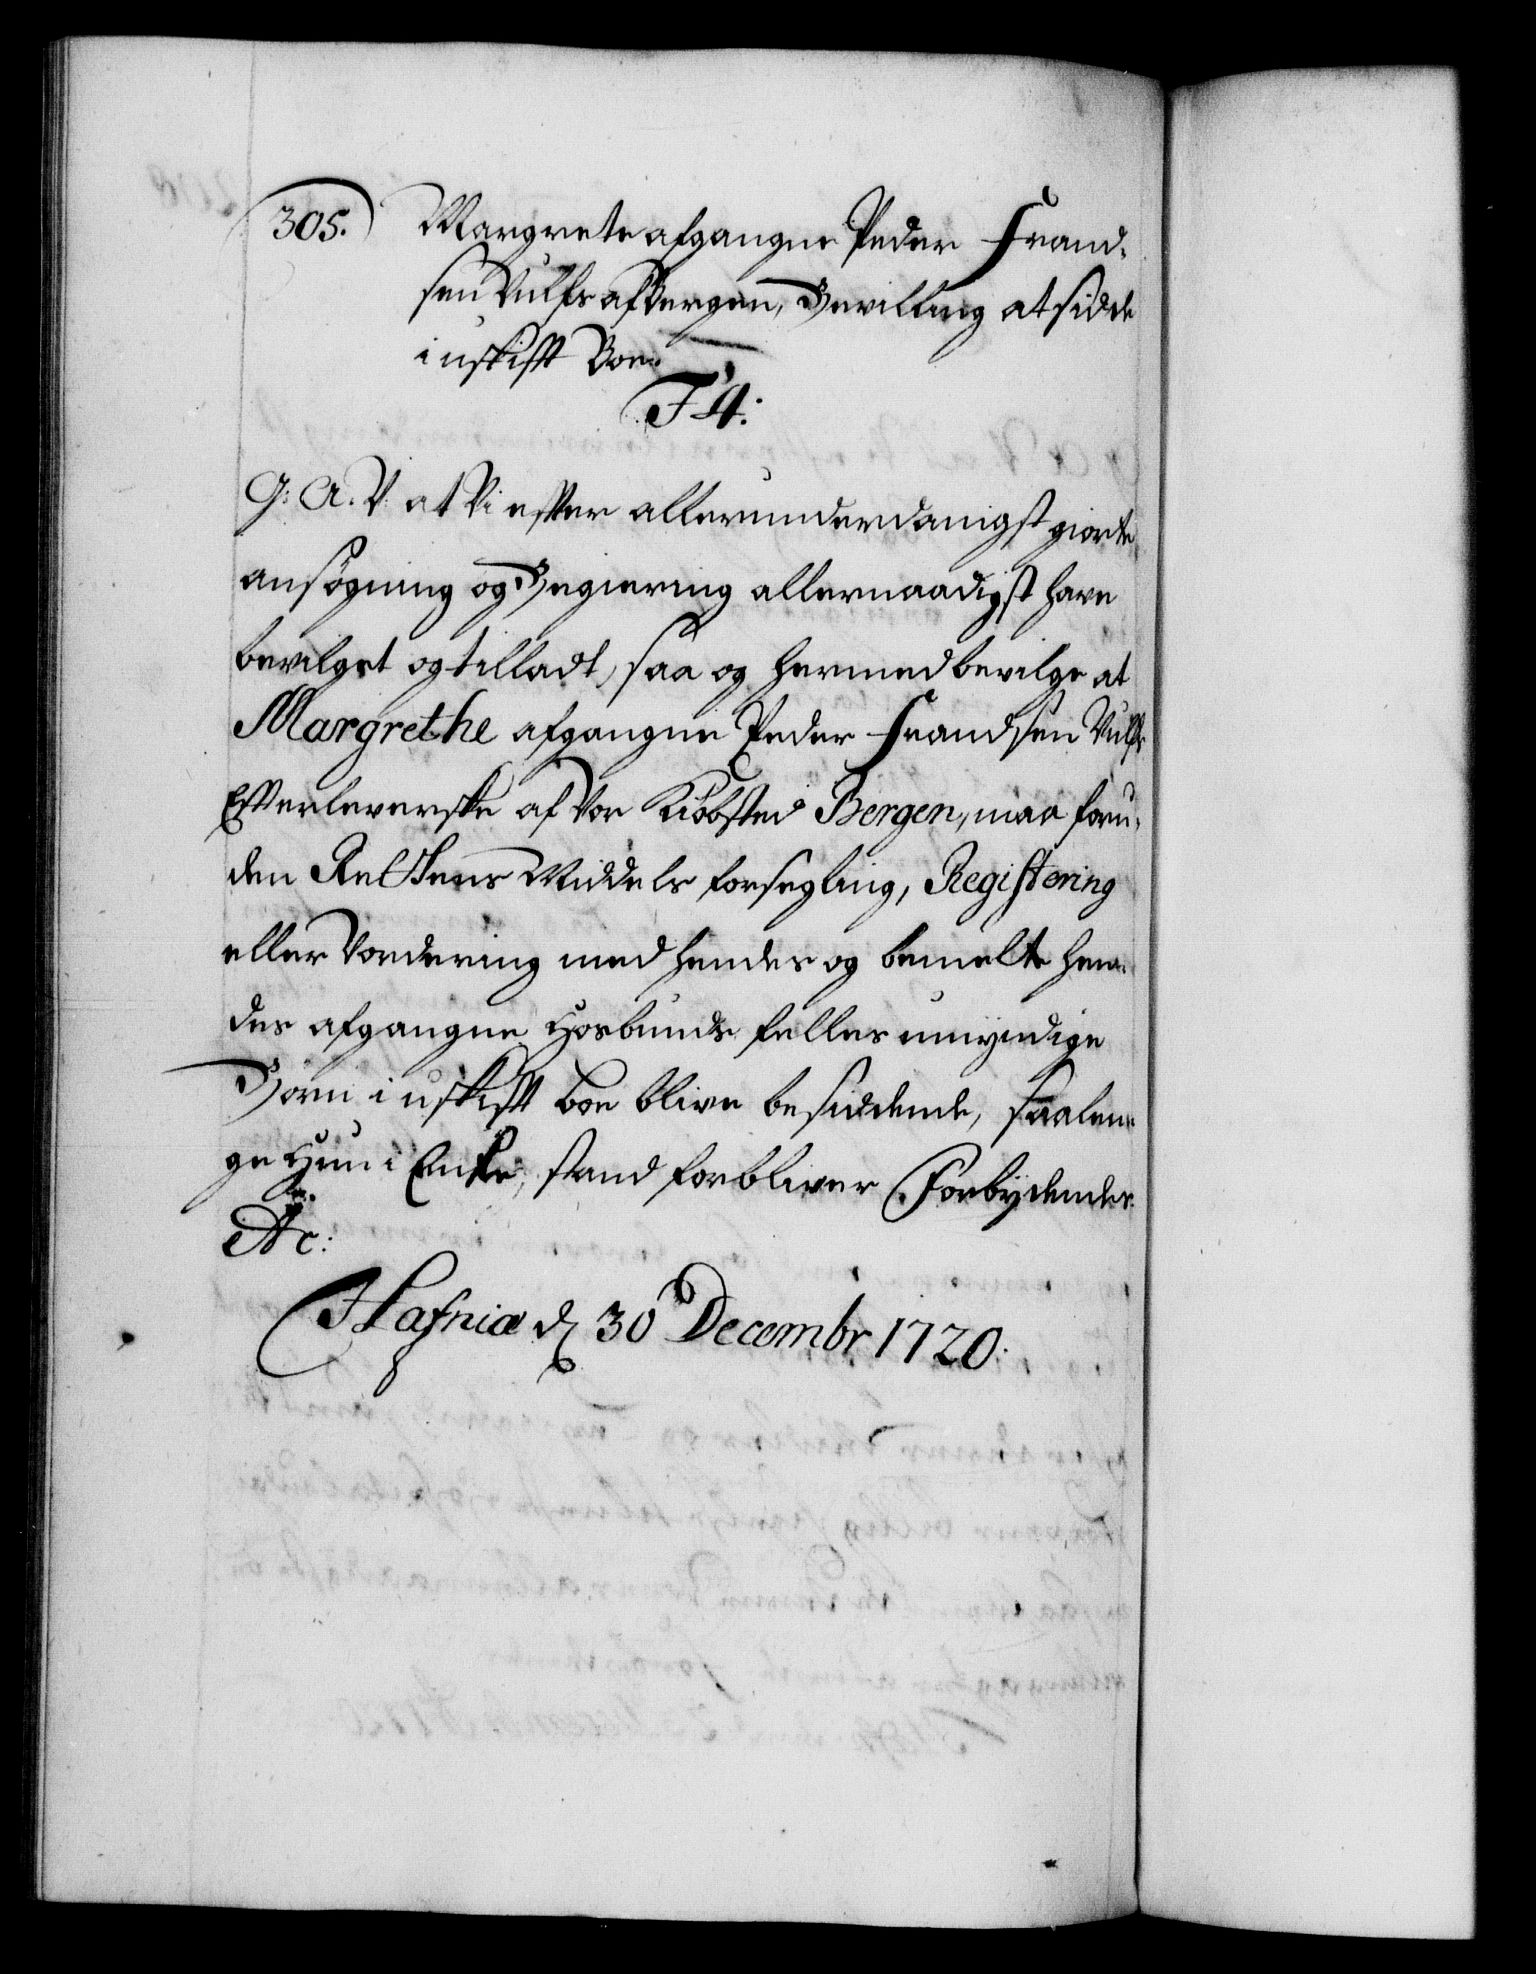 305. Margrete afgangne Peder Frand-
sen Vulfs af Bergen, Bevilling at sidde
i uskift Boe.
F 4:
G: A. V. at Vi efter allerunderdanigst giorte
ansögning og Begiering allernaadigst have
bevilget og tilladt, saa og hermed bevilge at
Margrethe afgangne Peder Frandsen Vulfs
Efterleverske af Vor Kiöbsted Bergen, maa foru-
den Rettens Middels forsegling, Registering
eller Vordering med hendes og bemelte hen-
des afgangne Hosbunds felles umyndige
Börn i uskift boe blive besiddende, saalen-
ge Hun i Enke, stand forbliver Forbydendes
Etc:
Hafniæ d 30 Decembr 1720.